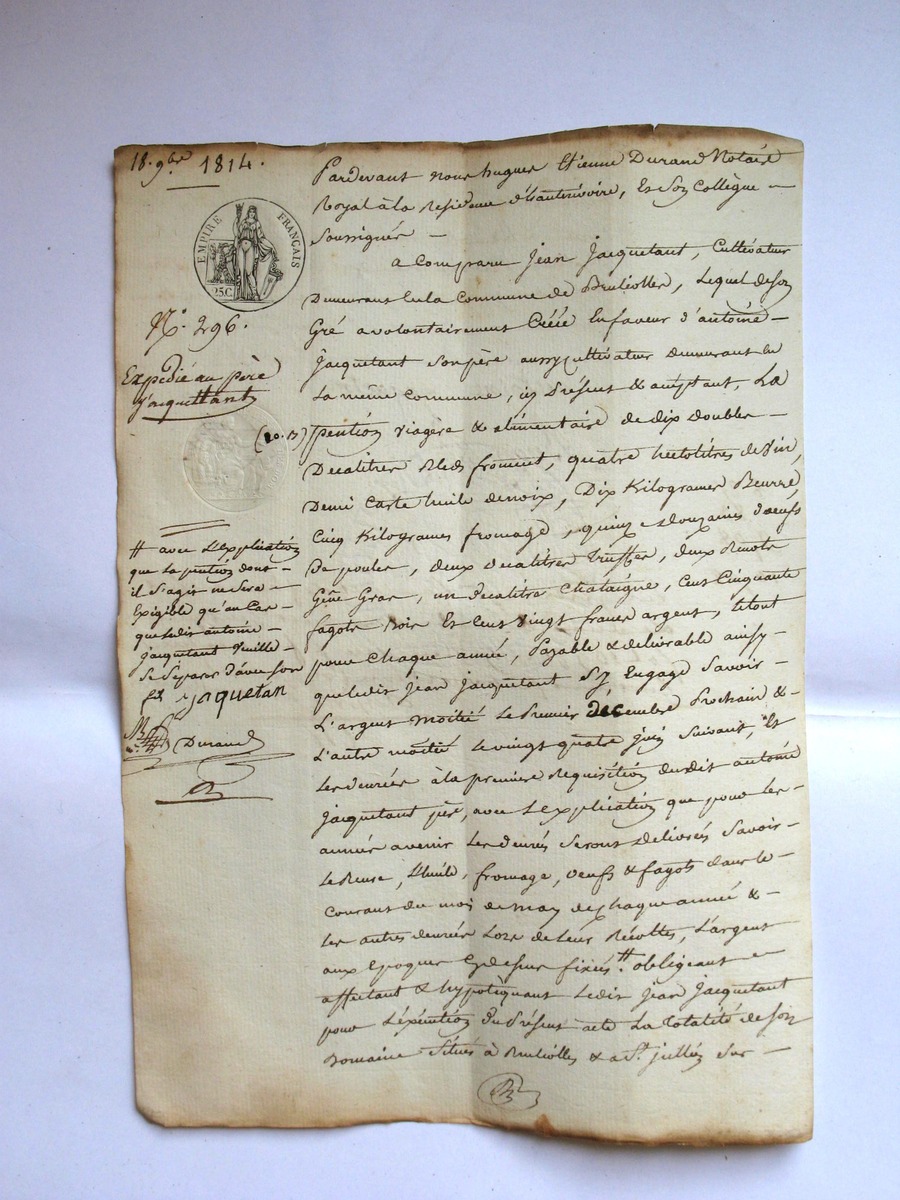 18. 9bre 1814.
EMPIRE FRANÇAIS
25.C
N.° 296.
Expedié au père
jacquettant
(20.B)
# avec L'explication
que la pention dont -
il s'agit ne sera -
Exigible qu'au Cas -
que ledit antoine -
jacquetant veuille -
Se Séparer d'avec son
fils jaquetan
Durand
Pardevant nous hugues Etienne Durand Notaire
Royal à la Residence d'hauterivoire, Et Son Collègue -
Soussignés -
a Comparu Jean Jacquetant, Cultivateur
Demeurant En la Commune de Bruliolles, Lequel de Son
Gré a volontairement Créée En faveur d'antoine -
Jacquetant Son père aussy Cultivateur demeurant En
La même Commune, icy Présent & acceptant, La
pention viagère & alimentaire de dix doubles -
Decalitres Bled froment, quatre hectolitres de vin,
Demi Carte huile de noix, Dix Kilogrames Beurre,
Cinq Kilogrames fromage, quinze douzaines d'oeufs
De poules, deux decalitres truffes, deux
Gras, un decalitre Chataigne, Cent Cinquante
fagots Bois Et Cent vingt francs argent, le tout
pour Chaque année, Payable & delivrable ainsy -
que ledit Jean Jacquetant S'y Engage Savoir -
L'argent moitié Le Premier décembre Prochain & -
L'autre moitié le vingt quatre juin Suivant, Et
Les denrées à la premiere Requisition dudit antoine
Jacquetant père, avec L'explication que pour les -
années avenir Les denrées Seront Delivrées Savoir -
Le Beure, L'huile, fromage, oeufs & fagots dans le -
Courant du mois de may de Chaque année & -
Les autres denrées Lors de Leur Récoltes, L'argent
aux Epoques Cy dessus fixées. # obligeant -
affectant & hypotèquant Ledit Jean Jacquetant
pour L'éxécution du Présent acte La totalité de Son
Domaine Situés à Bruliolles & a St. jullien Sur -